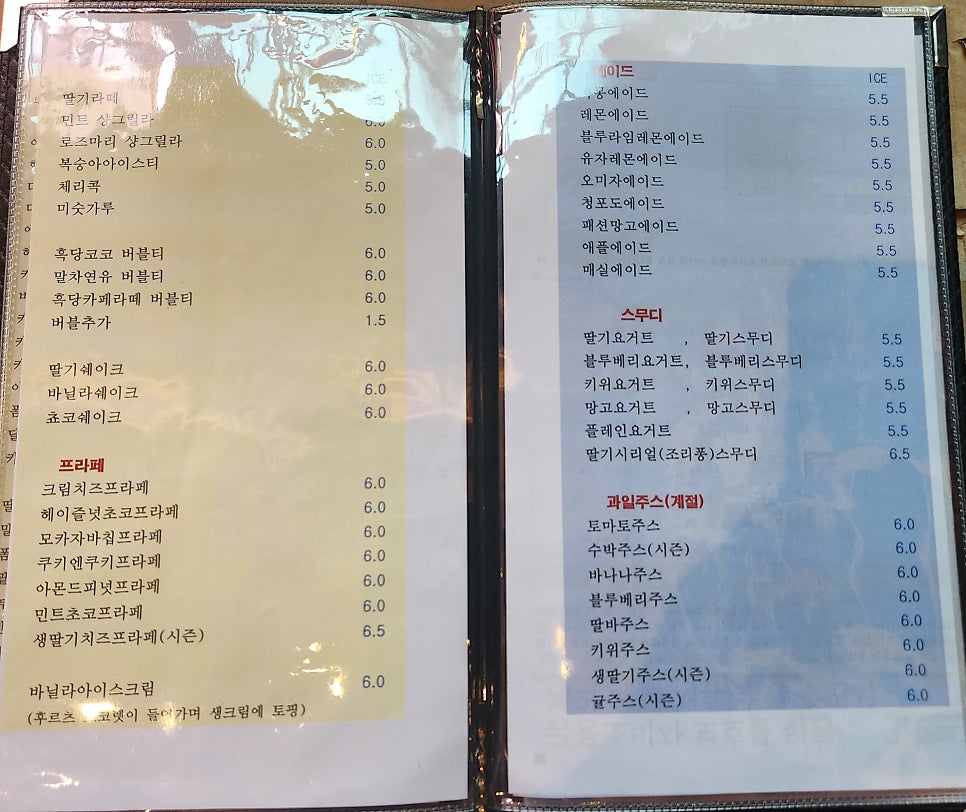 ICE
딸기라떼 5.5
민트 샹그릴라 6.0
로즈마리 샹그릴라 6.0
복숭아아이스티 5.0
체리콕 5.0
미숫가루 5.0
흑당코코 버블티 6.0
말차연유 버블티 6.0
흑당카페라떼 버블티 6.0
버블추가 1.5
딸기쉐이크 6.0
바닐라쉐이크 6.0
쵸코쉐이크 6.0
프라페
크림치즈프라페 6.0
헤이즐넛초코프라페 6.0
모카자바칩프라페 6.0
쿠키엔쿠키프라페 6.0
아몬드피넛프라페 6.0
민트초코프라페 6.0
생딸기치즈프라페(시즌) 6.5
바닐라아이스크림 6.0
(후르츠 들어가며 생크림에 토핑)
에이드 ICE
5.5
레몬에이드 5.5
블루라임레몬에이드 5.5
유자레몬에이드 5.5
오미자에이드 5.5
청포도에이드 5.5
패션망고에이드 5.5
애플에이드 5.5
매실에이드 5.5
스무디
딸기요거트 , 딸기스무디 5.5
블루베리요거트, 블루베리스무디 5.5
키위요거트 , 키위스무디 5.5
망고요거트 , 망고스무디 5.5
플레인요거트 5.5
딸기시리얼(조리퐁)스무디 6.5
과일주스(계절)
토마토주스 6.0
수박주스(시즌) 6.0
바나나주스 6.0
블루베리주스 6.0
딸바주스 6.0
키위주스 6.0
생딸기주스(시즌) 6.0
귤주스(시즌) 6.0